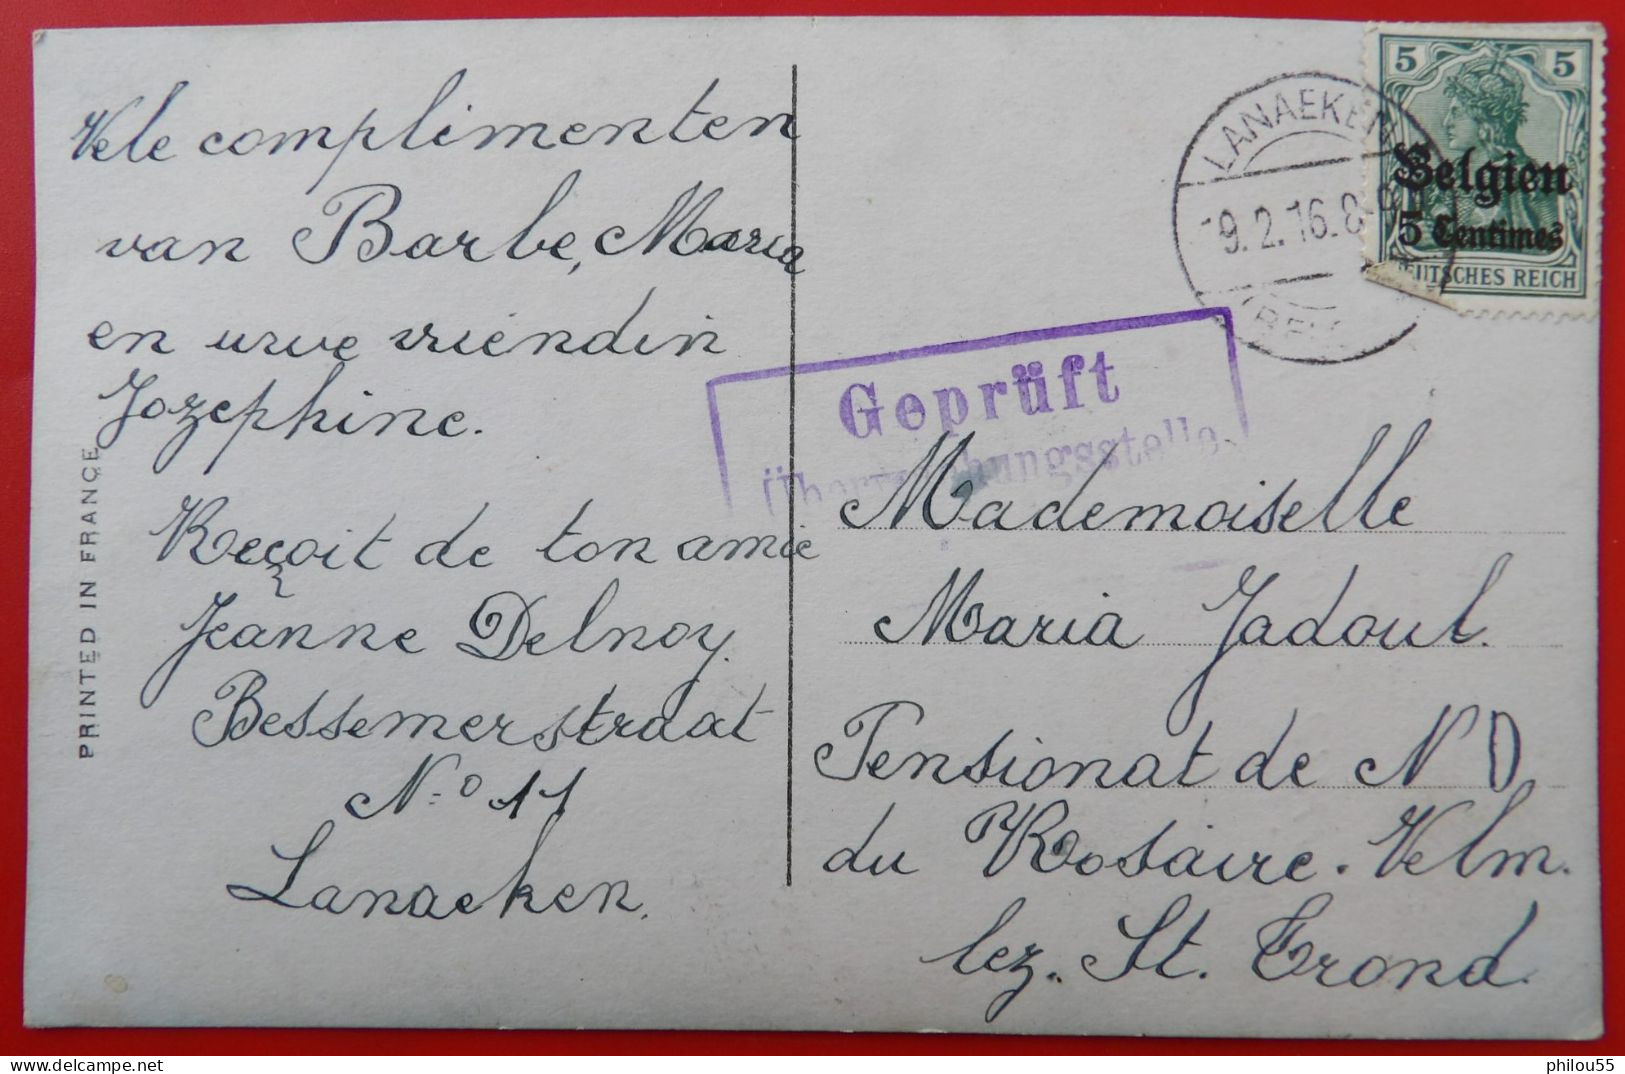 Vele complimenten
van Barbe, Maria
en uwe vriendin
Jozephine.
Reçoit de ton amie
Jeanne Delnoy.
Bessemerstraat
N.º 11
Lanaeken.
PRINTED IN FRANCE
5 5
Belgien
5 Centimes
DEUTSCHES REICH
LANAEKEN
19.2.16.8-
Geprüft
Überwachungsstelle
Mademoiselle
Maria Jadoul.
Pensionat de N D
du Rosaire. Velm.
lez. St. Trond.
delcampe.net
philou55